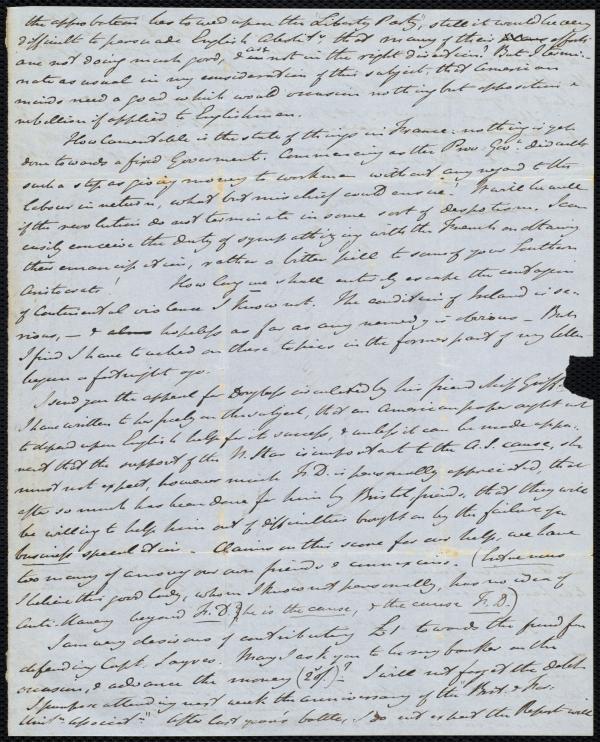 the approbation bestowed upon the Liberty Party", still it would be very
difficult to persuade English Abolit.ts that many of their efforts
are not doing much good, & not in the right direction! But I termi-
nate as usual in my consideration of this subject, that American
minds need a goad which would occasion nothing but opposition &
rebellion if applied to Englishmen.
How lamentable is the state of things in France. nothing is yet
done towards a fixed Government. Commencing as the Prov. Gov.t did with
such a step as giving money to workmen without any regard to the
labour in return, what but mischief could ensue! It will be well
if the revolution do not terminate in some sort of despotism. I can
easily conceive the duty of sympathizing with the French on attaining
their emancipation, rather a bitter pill to some of your Southern
Aristocrats! How long we shall entirely escape the contagion
of Continental violence I know not. The condition of Ireland is se-
rious, — & hopeless as far as any remedy is obvious — But
I find I have touched on these topics in the former part of my letter
begun a fortnight ago.
I send you the appeal for Douglass circulated by his friend Miss Griffiths
I have written to her freely on the subject, that an American paper ought not
to depend upon English help for its success, & unless it can be made appa-
rent that the support of the N. Star is important to the A.S. cause, she
must not expect, however much F.D. is personally appreciated, that
after so much has been done for him by Bristol friends, that they will
be willing to help him out of difficulties brought on by the failure of a
business speculation. Claims on this score for our help, we have
too many of among our own friends & connexions. (
I believe this good lady, whom I know not personally, has no idea of
Anti-Slavery beyond F.D. he is the cause, & the cause F.D.)
I am very desirous of contributing £1 towards the fund for
defending Capt. Sayres. May I ask you to be my banker on the
occasion, & advance the money? I will not forget the debt.
I purpose attending next week the anniversary of the "Brit. & For.
Unit.n Associat.n" After last year's battle, I do not expect the Report will